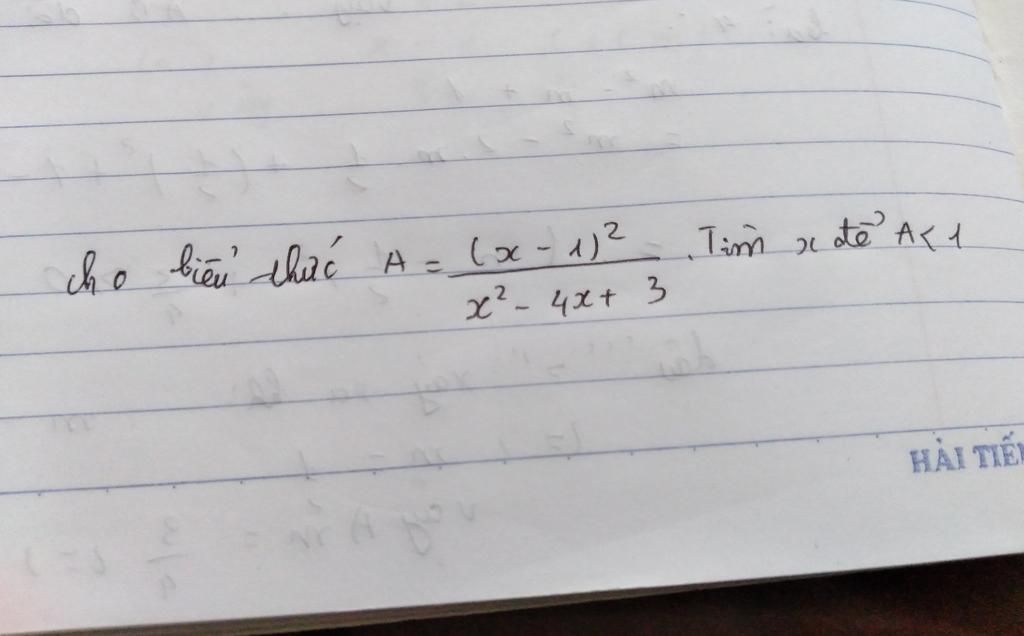 cho biểu thức A = (x - 1)² / x² - 4x + 3 . Tìm x để A < 1
HẢI TIẾN